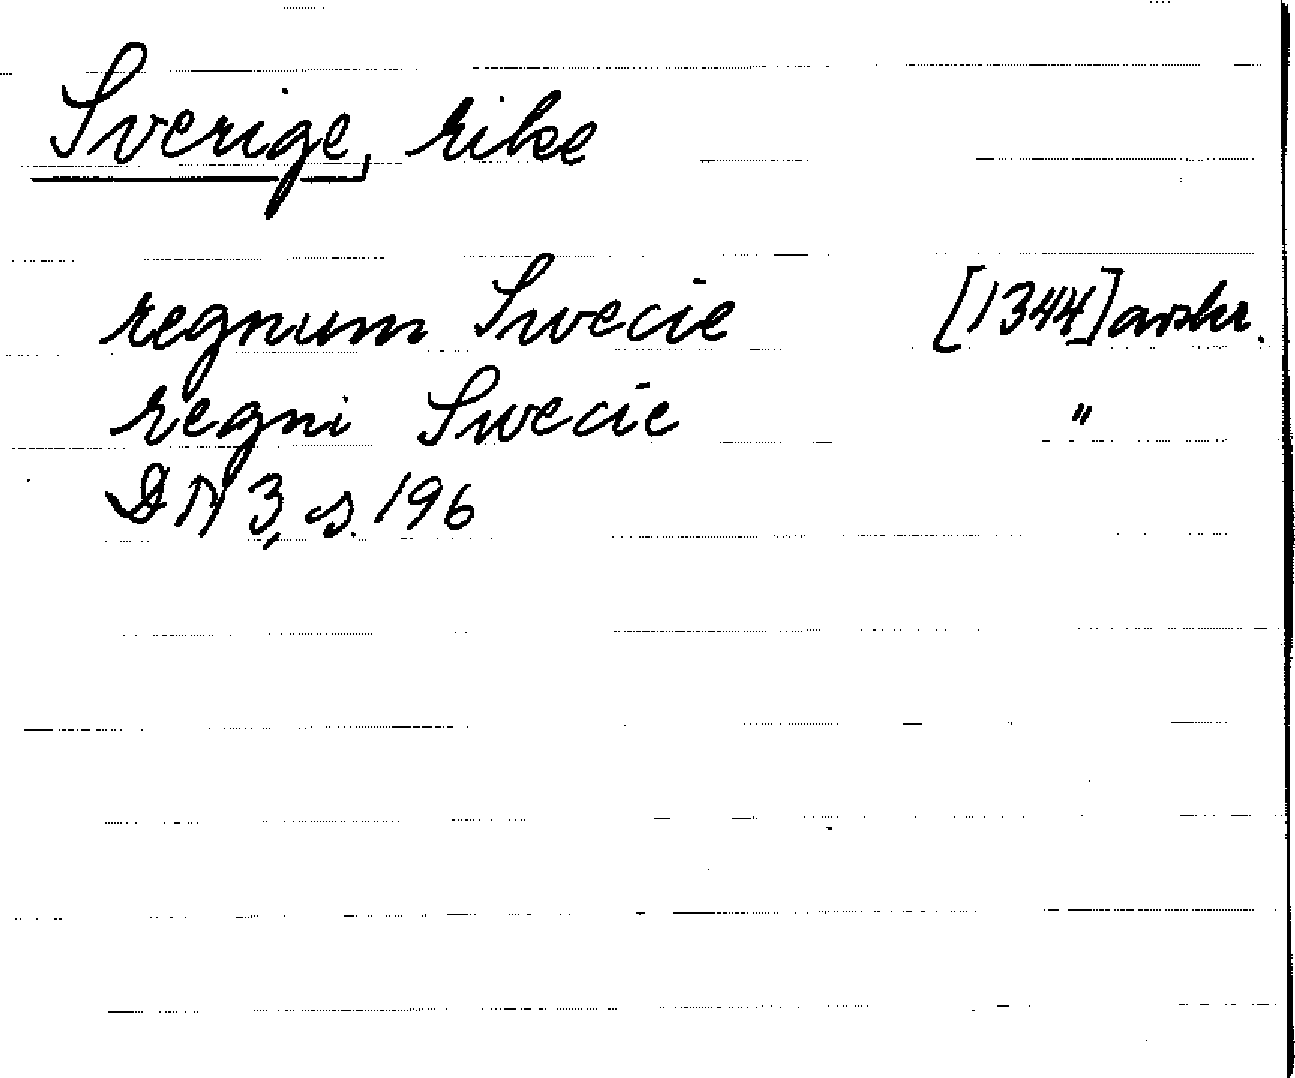 Sverige, rike
regnum Swecie [1344] avskr.
regni Swecie "
DN 3, s. 196